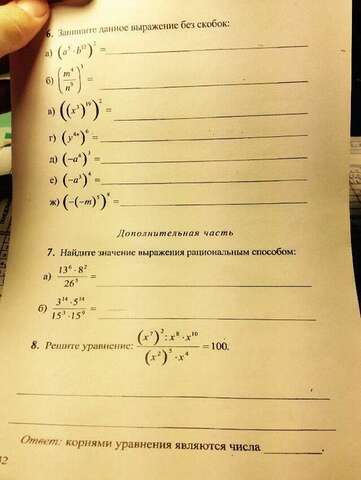 6. Запишите данное выражение без скобок:
а) (a⁵ · b¹²)² =
б) (m⁴/n⁹)³ =
в) ((x³)¹⁹)² =
г) (y⁴ⁿ)⁶ =
д) (−a⁶)³ =
е) (−a³)⁴ =
ж) (−(−m)⁵)⁸ =
Дополнительная часть
7. Найдите значение выражения рациональным способом:
а) 13⁶ · 8² / 26⁵ =
б) 3¹⁴ · 5¹⁴ / 15³ · 15⁹ =
8. Решите уравнение: (x⁷)² : x⁸ · x¹⁰ / (x²)⁵ · x⁴ = 100.
Ответ: корнями уравнения являются числа .